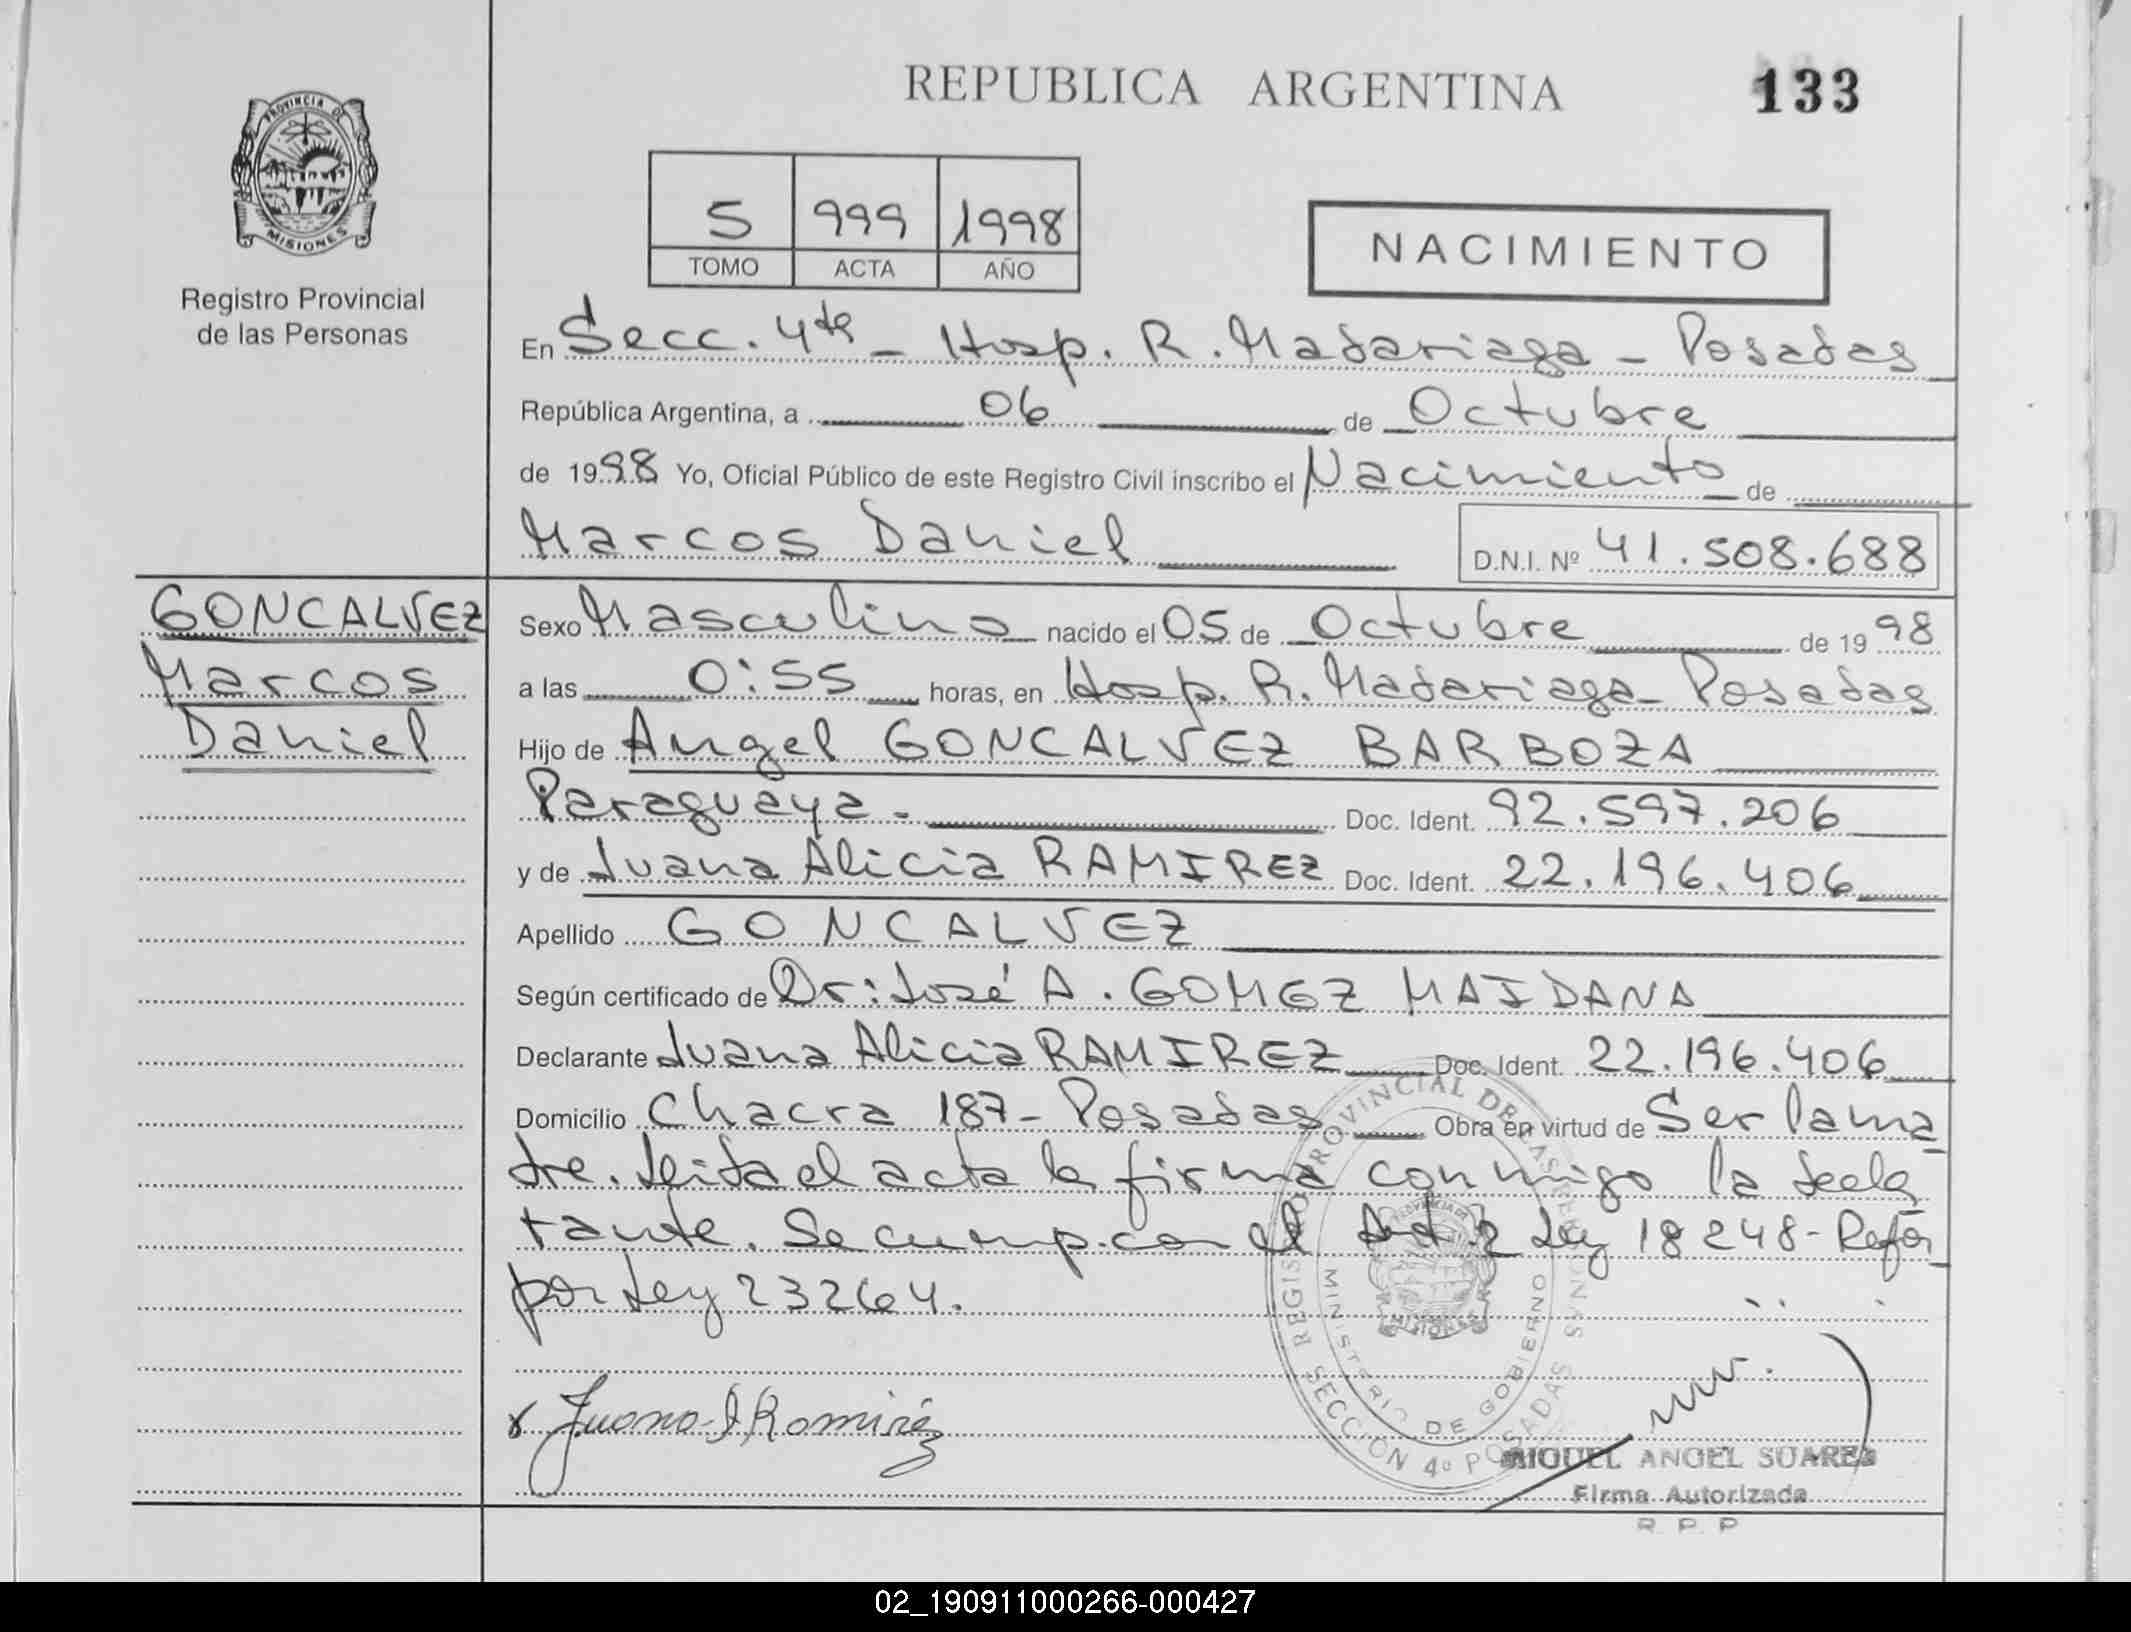 REPUBLICA ARGENTINA
133
PROVINCIA DE
MISIONES
Registro Provincial
de las Personas
5 999 1998
TOMO ACTA AÑO
NACIMIENTO
En Secc. 4ta - Hosp. R. Madariaga - Posadas
República Argentina, a 06 de Octubre
de 1998 Yo, Oficial Público de este Registro Civil inscribo el Nacimiento de
Marcos Daniel D.N.I. Nº 41.508.688
GONCALVEZ
Marcos
Daniel
Sexo Masculino nacido el 05 de Octubre de 1998
a las 0:55 horas, en Hosp. R. Madariaga - Posadas
Hijo de Angel GONCALVEZ BARBOZA
Paraguaya - Doc. Ident. 92.597.206
y de Juana Alicia RAMIREZ Doc. Ident. 22.196.406
Apellido GONCALVEZ
Según certificado de Dr: José A. GOMEZ MAIDANA
Declarante Juana Alicia RAMIREZ Doc. Ident. 22.196.406
Domicilio Chacra 187 - Posadas Obra en virtud de Ser la ma
dre. Leida el acta la firma conmigo la decla
rante. Se cump. con el Art. 2 Ley 18248 - Refor
por Ley 23264.
REGISTRO PROVINCIAL DE LAS PERSONAS
MINISTERIO DE GOBIERNO
SECCION 4º POSADAS
PROVINCIA DE
MISIONES
Juana A Ramirez
MIGUEL ANGEL SUAREZ
Firma Autorizada
R. P. P
02_190911000266-000427